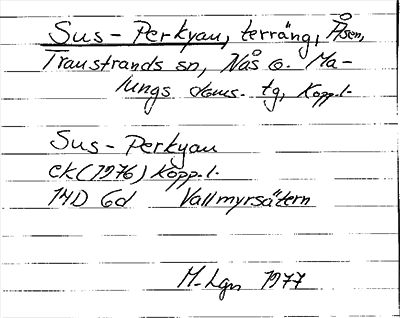 Sus-Perkyau, terräng, Åsen,
Transtrands sn, Nås o. Ma-
lungs doms. tg, Kopp.l.
Sus-Perkyau
ek(1976) Kopp.l.
14D 6d Vallmyrsätern
M-Lgn 1977